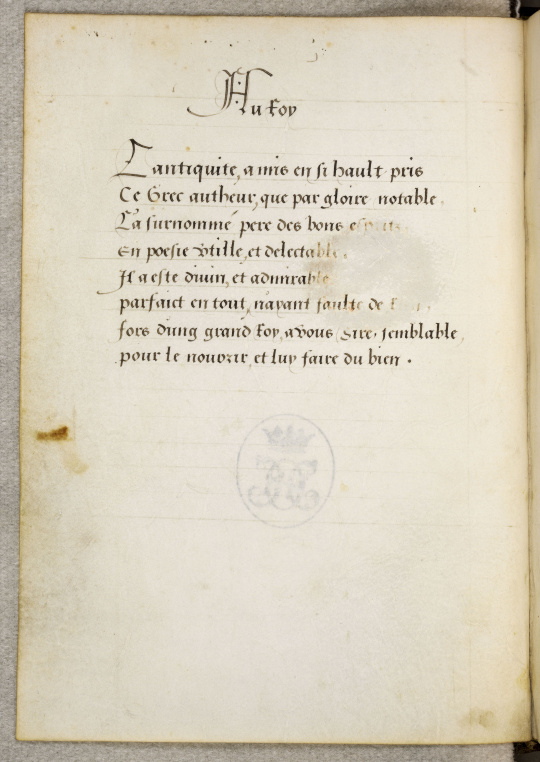 Au Roy
L'antiquite, a mis en si hault pris
Ce Grec autheur, que par gloire notable,
L'a surnommé pere des bons espritz
En poesie vtille, et delectable,
Il a este diuin, et admirable
parfaict en tout, n'ayant faulte de
fors dung grand Roy, a vous Sire, semblable,
pour le nourrir, et luy faire du bien .